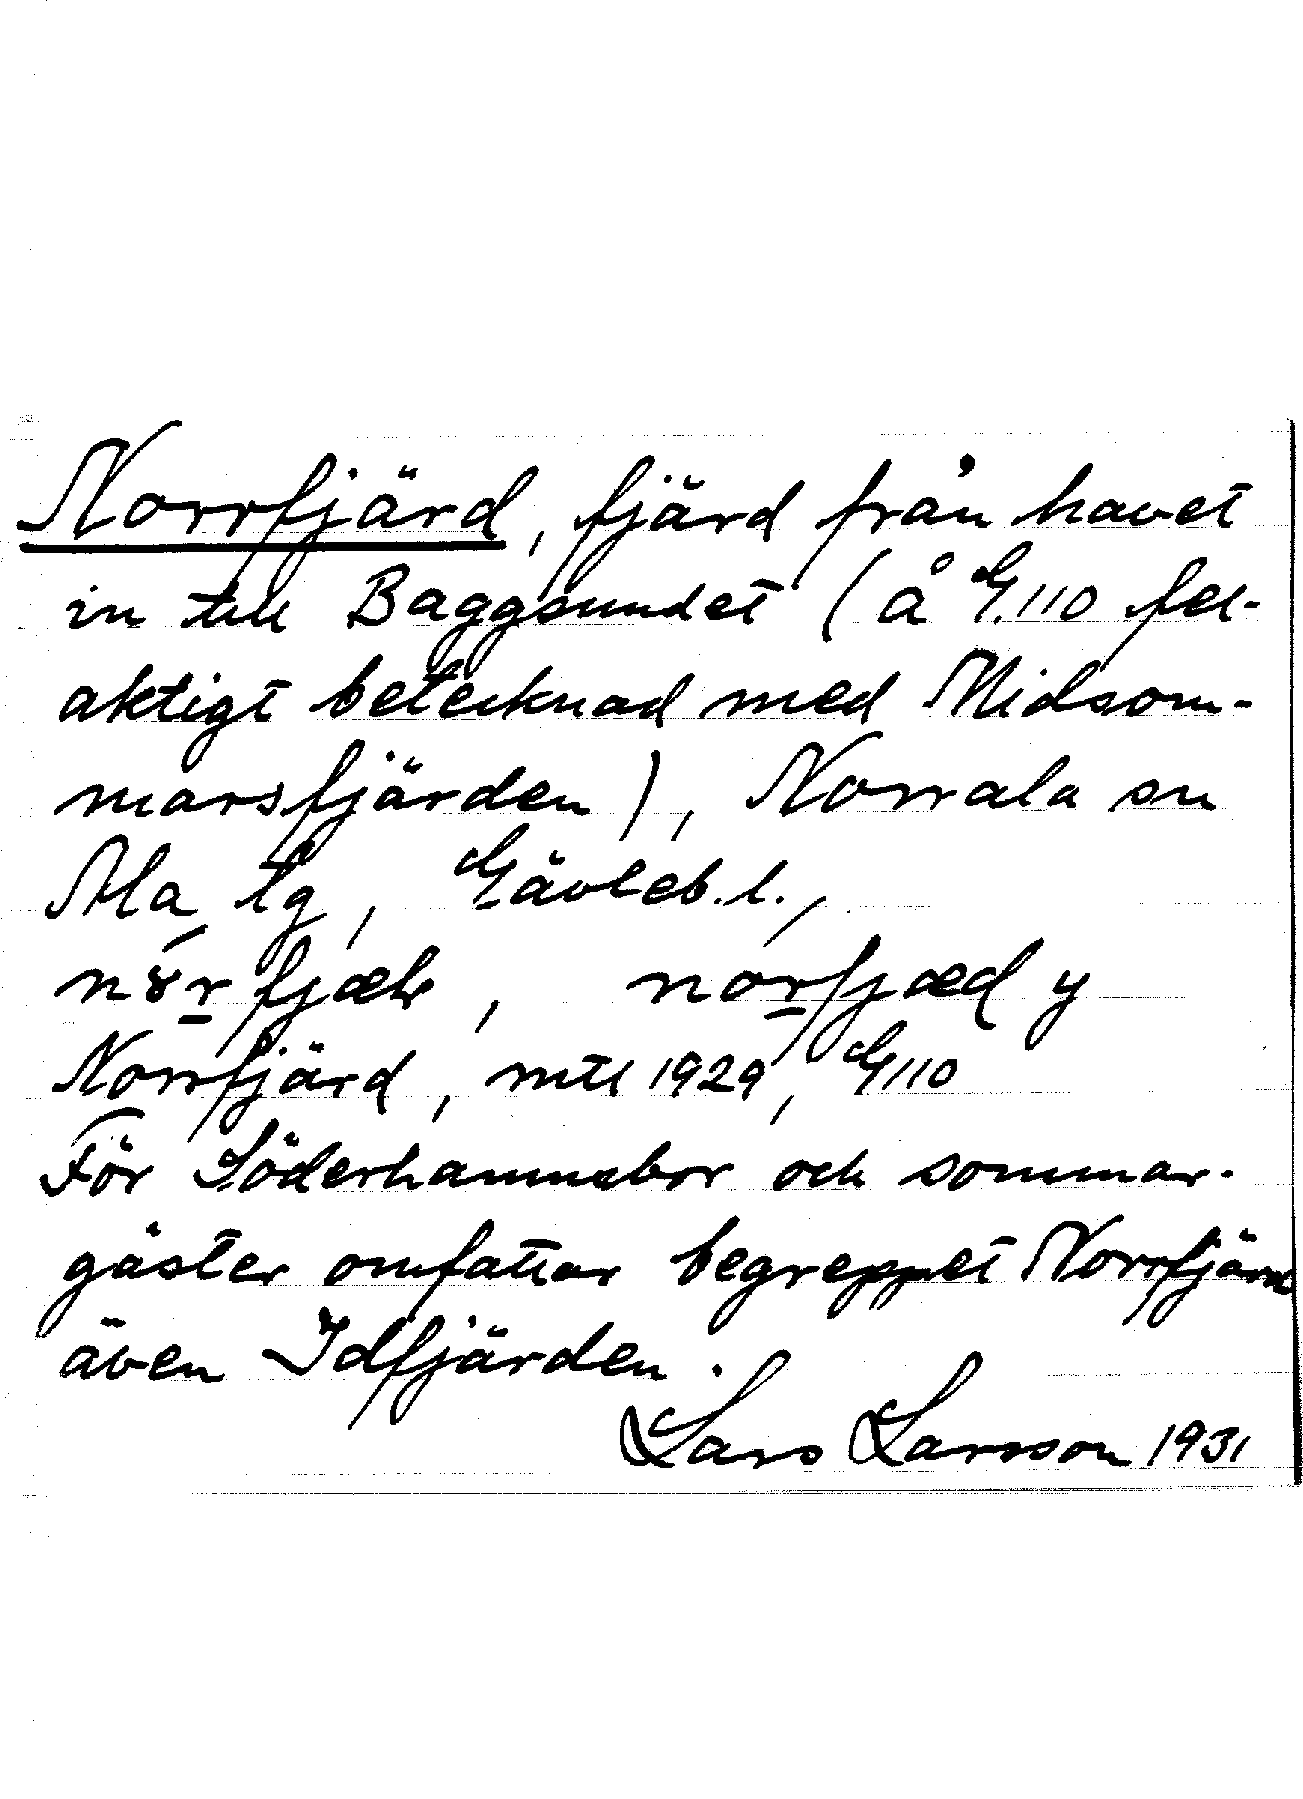 Norrfjärd, fjärd från havet
in till Baggsundet (å G.110 fel-
aktigt betecknad med Midsom-
marsfjärden), Norrala sn
Ala tg, Gävleb.l.,
norfjæd y
Norrfjärd, mtl 1929, G110
För Söderhamnsbor och sommar-
gäster omfattar begreppet Norrfjärd
även Idfjärden.
Lars Larsson 1931